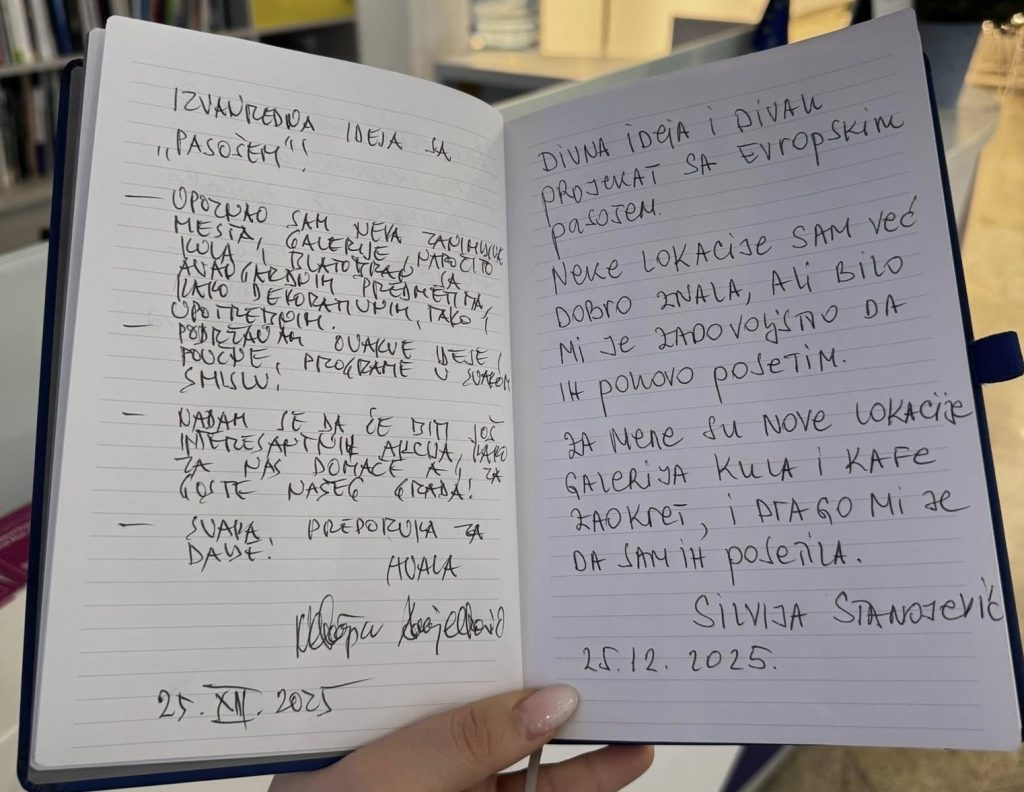 IZVANREDNA IDEJA SA
„PASOŠEM"!
— UPOZNAO SAM NEKA ZANIMLJIVA
MESTA, GALERIJE, NAROČITO
KULA I
AVANGARDNIM PREDMETIMA,
KAKO DEKORATIVNIM, TAKO I
UPOTREBNIM.
— PODRŽAVAM OVAKVE IDEJE I
POUČNE, PROGRAME U SVAKOM
SMISLU!
— NADAM SE DA ĆE BITI JOŠ
INTERESANTNIH AKCIJA, KAKO
ZA NAS DOMAĆE A I ZA
GOSTE NAŠEG GRADA!
— SVAKA PREPORUKA ZA
DALJE!
HVALA
25. XII. 2025
DIVNA IDEJA I DIVAN
PROJEKAT SA EVROPSKIM
PASOŠEM.
NEKE LOKACIJE SAM VEĆ
DOBRO ZNALA, ALI BILO
MI JE ZADOVOLJSTVO DA
IH PONOVO POSETIM.
ZA MENE SU NOVE LOKACIJE
GALERIJA KULA I KAFE
ZAOKRET, I DRAGO MI JE
DA SAM IH POSETILA.
SILVIJA STANOJEVIĆ
25.12. 2025.